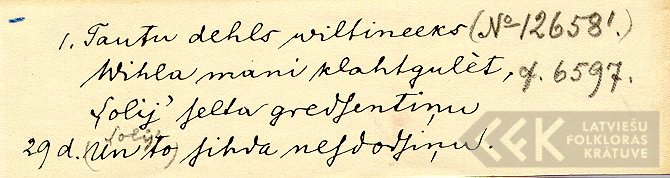 1. Tautu dehls wiltineeks (No 12658¹.)
Wihla mani klahtgulèt, cf. 6597.
Solij' selta gredsentiņu
solija
29 d. (Un to sihda nesdodsiņu.
LATVIEŠU
FOLKLORAS
KRĀTUVE